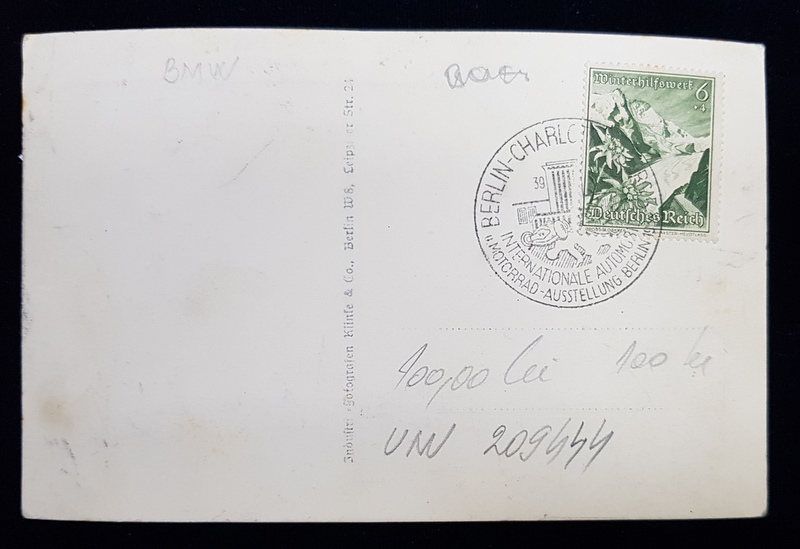 BMW
Winterhilfswerk 6
+4
Deutsches Reich
BERLIN-CHARLO
39
INTERNATIONALE AUTOMO
"MOTORRAD-AUSSTELLUNG BERLIN 19
Industrie-Fotografen Klinke & Co., Berlin W8, Leipziger Str. 24
100,00 lei 100 lei
UNN 209444